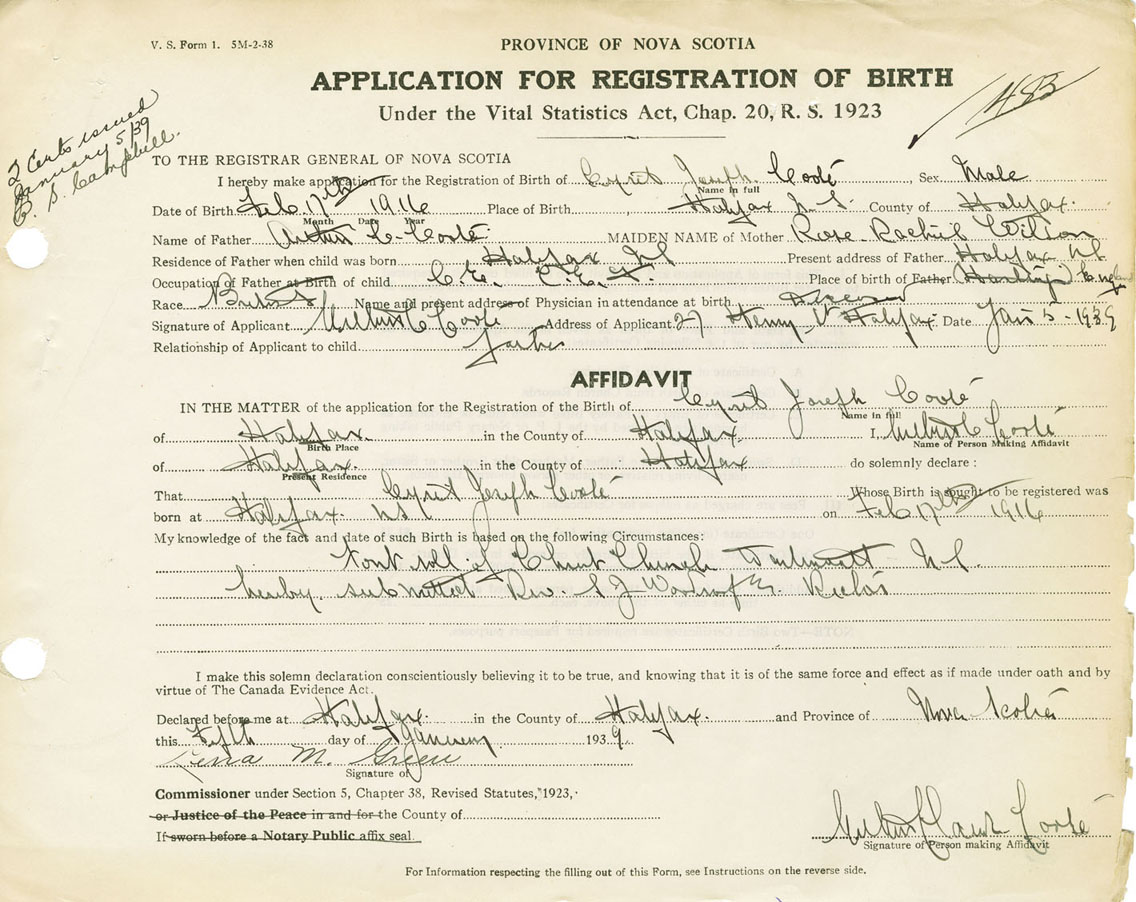 V. S. Form 1. 5M-2-38
PROVINCE OF NOVA SCOTIA
APPLICATION FOR REGISTRATION OF BIRTH
Under the Vital Statistics Act, Chap. 20, R. S. 1923
483
2 Certs issued
January 5/39
B. S. Campbell.
TO THE REGISTRAR GENERAL OF NOVA SCOTIA
I hereby make application for the Registration of Birth of Cyril Joseph Coolé, Sex Male
Name in full
Date of Birth Feb 17th 1916 Place of Birth Halifax N.S. County of Halifax.
Month Date Year
Name of Father Arthur C. Coolé MAIDEN NAME of Mother Rose Rachel Wilson
Residence of Father when child was born Halifax NS Present address of Father Halifax NS
Occupation of Father at Birth of child C.E. C.E.F. Place of birth of Father England
Race British Name and present address of Physician in attendance at birth
Signature of Applicant Arthur C Coolé Address of Applicant 27 Henry St Halifax Date Jan 5 - 1939
Relationship of Applicant to child Father
AFFIDAVIT
IN THE MATTER of the application for the Registration of the Birth of Cyril Joseph Coolé
Name in full
of Halifax. in the County of Halifax. I, Arthur C Coolé
Birth Place Name of Person Making Affidavit
of Halifax. in the County of Halifax do solemnly declare :
Present Residence
That Cyril Joseph Coolé Whose Birth is sought to be registered was
born at Halifax. NS on Feb 17th 1916
My knowledge of the fact and date of such Birth is based on the following Circumstances:
Font roll of Christ Church Dartmouth N.S.
hereby submitted Rev. S J Woodroofe. Rector
I make this solemn declaration conscientiously believing it to be true, and knowing that it is of the same force and effect as if made under oath and by
virtue of The Canada Evidence Act.
Declared before me at Halifax. in the County of Halifax. and Province of Nova Scotia
this Fifth day of January 1939
Lena M. Green
Signature of
Commissioner under Section 5, Chapter 38, Revised Statutes, 1923,
or Justice of the Peace in and for the County of
If sworn before a Notary Public affix seal.
Arthur Claude Coolé
Signature of Person making Affidavit
For Information respecting the filling out of this Form, see Instructions on the reverse side.